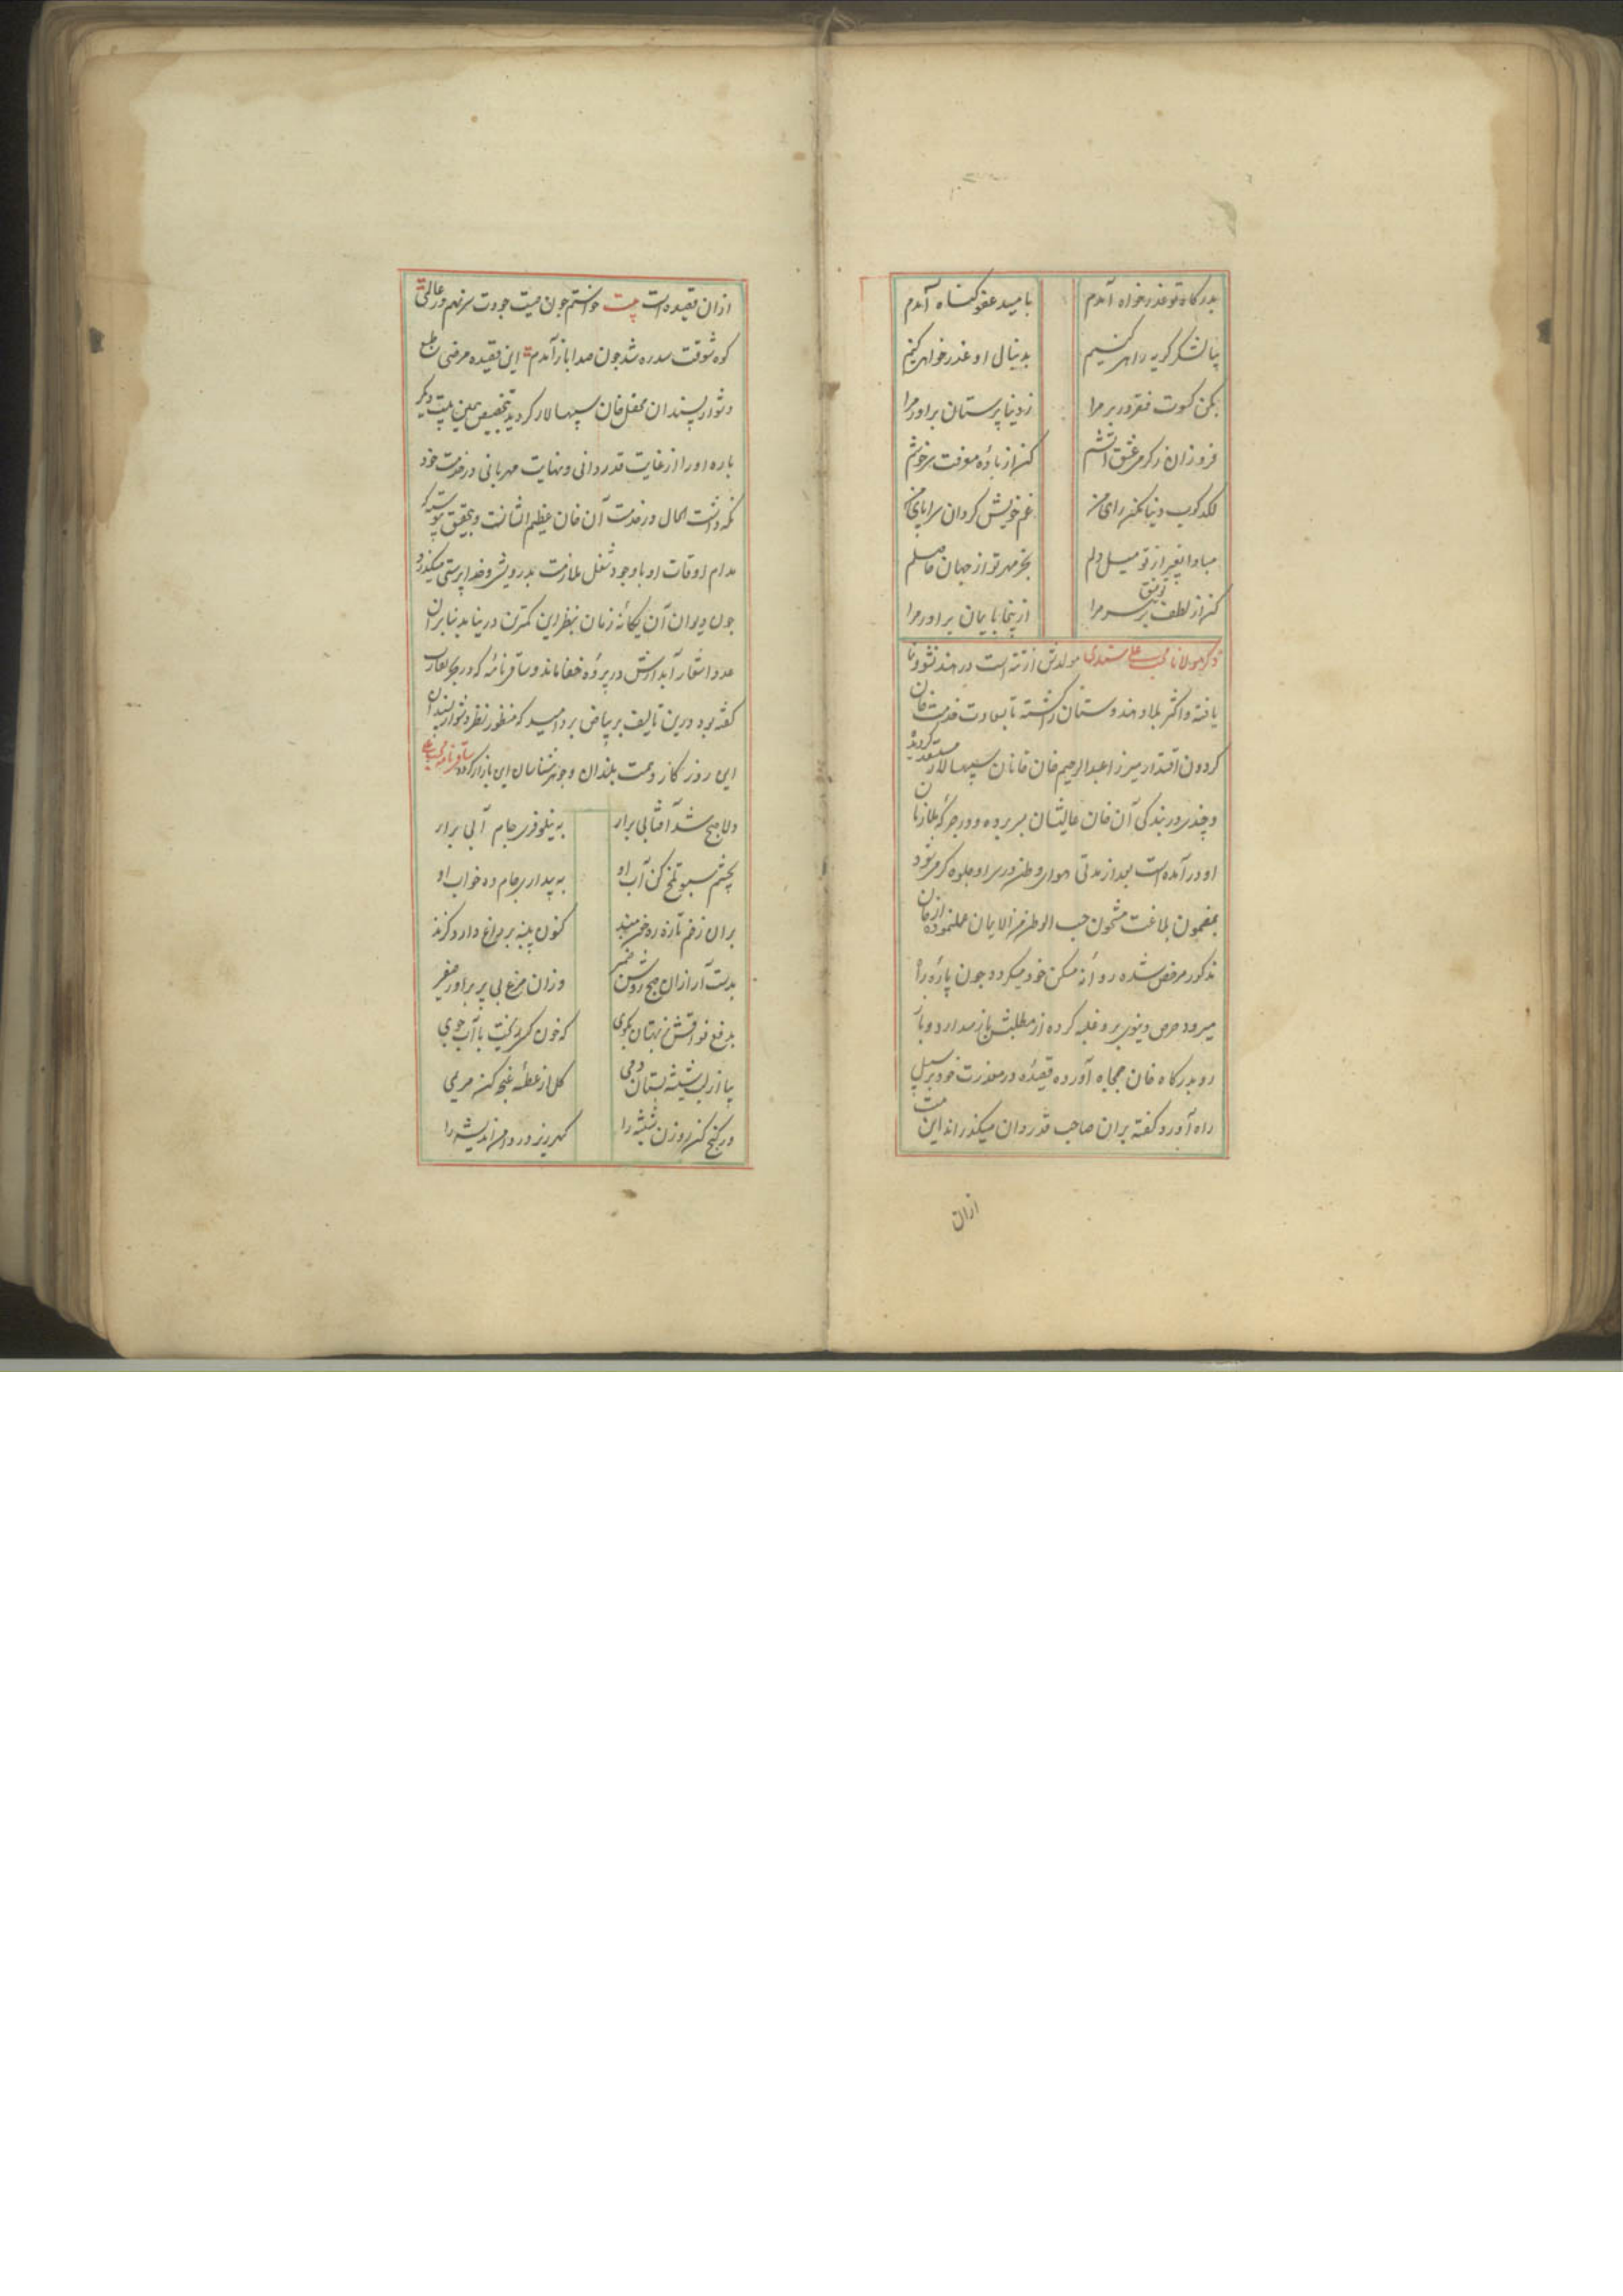 بدرکاه تو عذرخواه آمدم بامید عفو کناه آمدم
بیا لشکر کریه راهی کنیم بدنبال او عذرخواهی کنیم
بکن کسوت فقر در بر مرا ز دنیاپرستان براور مرا
فروزان ز کرمی عشق آتشم کن از باده معرفت سرخوشم
لکدکوب دنیا مکن رای من غم خویش کردان سراپای من
مبادا بغیر از تو میل دلم بجز مهر تو از جهان حاصلم
کن از لطف توفیق بر سر مرا ازینجا بایمان براور مرا
ذکر مولانا محب علی سندی مولدش از تته است در هند نشو و نما
یافته و اکثر بلاد هندوستان را کشته تا بسعادت خدمت خان
کردون اقتدار میرزا عبدالرحیم خان خانان سپهسالار مستسعد کردیده
و چند روز در بندکی آن خان عالیشان بسر برده و در جرکه ملازمان
او درآمده است بعد از مدتی هوای وطن در سر او جلوه کر میشود
بمضمون بلاغت مشحون حب الوطن من الایمان عمل نموده از خان
مذکور مرخص شده روانه مسکن خود میکردد چون پاره راه
میرود حرص دنیوی برو غلبه کرده از مطلبش باز میدارد و باز
رو بدرکاه خان جمجاه آورده قصیده در معذرت خود بر سبیل
راه آورد کفته بران صاحب قدردان میکذراند این بیت
ازان
ازان قصیده است بیت خواستم چون صیت جودت سرنهم در عالمی
کوه شوقت سد ره شد چون صدا باز آمدم این قصیده مرضی طبع
دشوارپسندان محفل خان سپهسالار کردید بتخصیص همین بیت دیکر
باره او را از غایت قدردانی و نهایت مهربانی در خدمت خود
نکه داشت الحال در خدمت آن خان عظیم الشانست و بتحقیق پیوسته که
مدام اوقات او با وجود شغل ملازمت بدرویشی و خداپرستی میکذرد
چون دیوان آن یکانه زمان بنظر این کمترین در نیامد بنابران
عدد اشعار آبدارش در پرده خفا ماند و ساقی نامه که در بحر تقارب
کفته بود درین تالیف بر بیاض برد امید که منظور نظر دشوارپسندان
این روزکار و همت بلندان و جوهرشناسان این بازار کردد ساقی نامه محب علی
دلا صبح شد آفتابی برار به نیلوفری جام آبی برار
بچشم سبو تلخ کن آب او به بیداری جام ده خواب او
بران زخم تازه ره خون مبند کنون پنبه بر داغ دارد کزند
بدست آر ازان صبح روشن ضمیر وزان مرغ بی پر براور صفیر
بدفع نواقش ز بهتان بکوی که خون که ریخت با آب جوی
بیا از لب شیشه بستان دمی کل از عطسه غنچه کن مریمی
در کنج کن روزن شیشه را کهر ریز در دامن اندیشه را